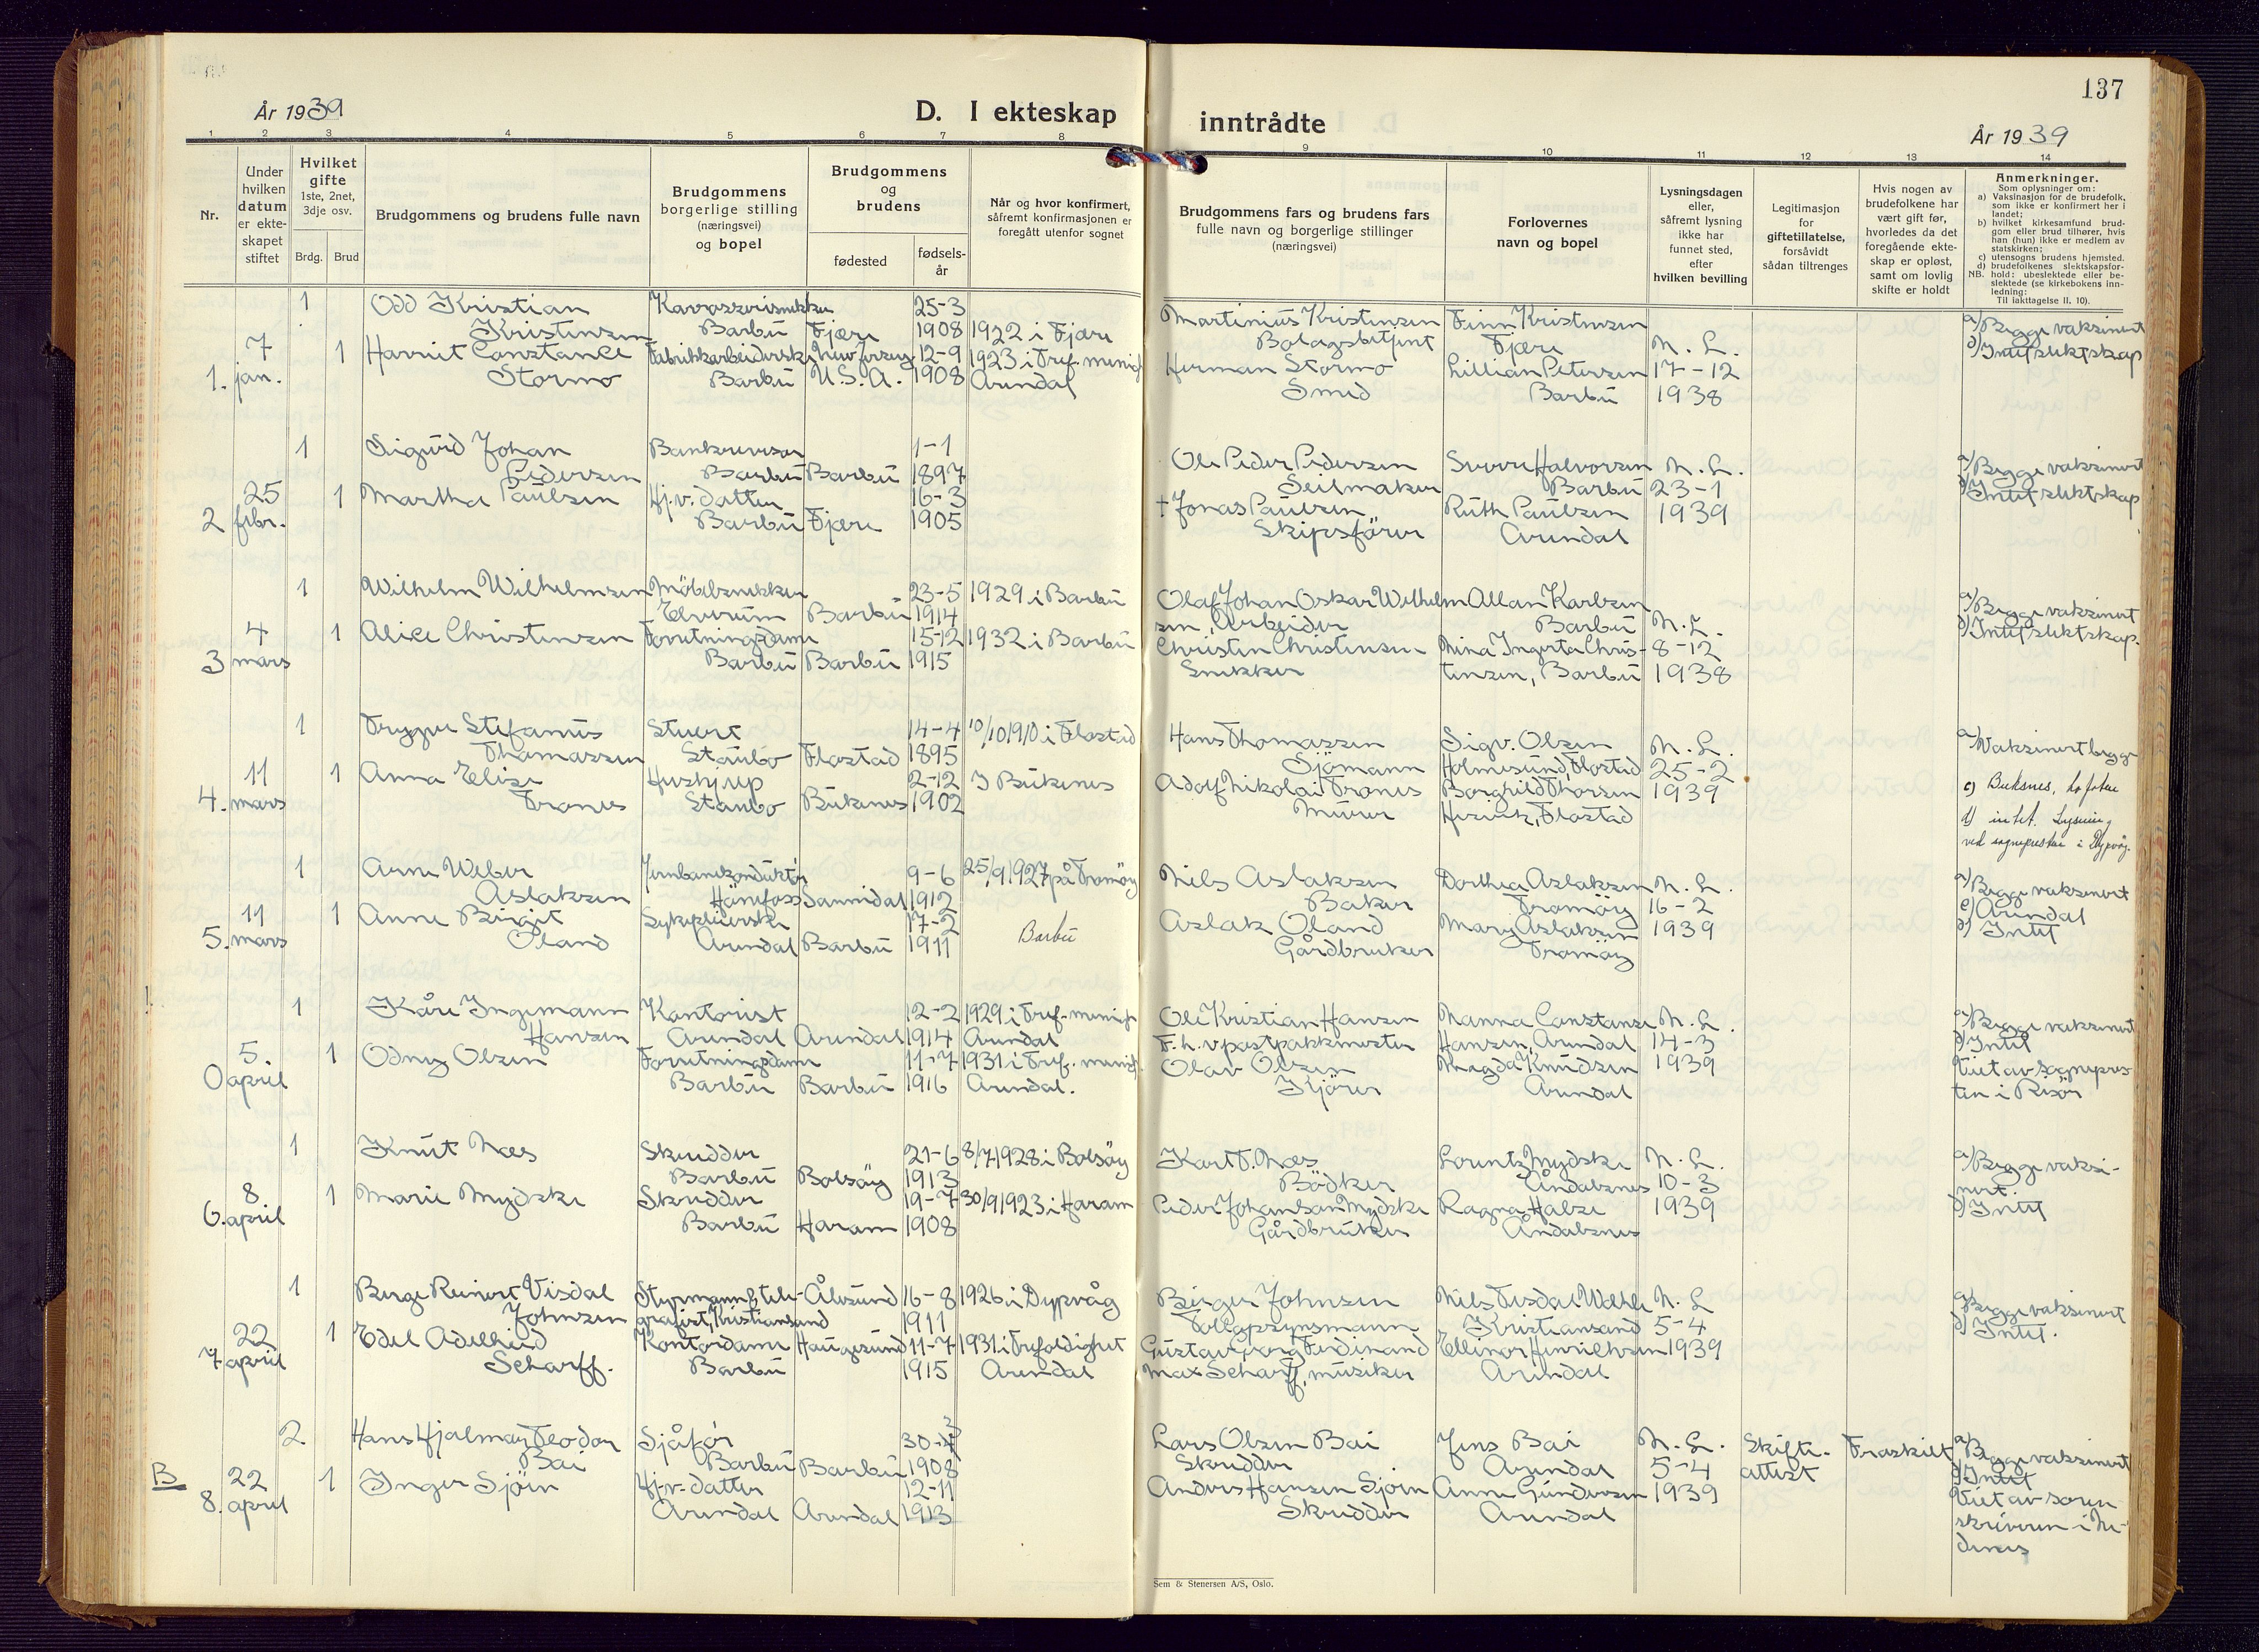 137
År 1939
D. I ekteskap
inntrådte
År 1939
1 2 3 4 5 6 7 8 9 10 11 12 13 14
Nr.
Under
hvilken
datum
er ekte-
skapet
stiftet
Hvilket
gifte
1ste, 2net,
3dje osv.
Brdg. Brud
Brudgommens og brudens fulle navn
Brudgommens
borgerlige stilling
(næringsvei)
og bopel
Brudgommens
og
brudens
fødested
fødsels-
år
Når og hvor konfirmert,
såfremt konfirmasjonen er
foregått utenfor sognet
Brudgommens fars og brudens fars
fulle navn og borgerlige stillinger
(næringsvei)
Forlovernes
navn og bopel
Lysningsdagen
eller,
såfremt lysning
ikke har
funnet sted,
efter
hvilken bevilling
Legitimasjon
for
giftetillatelse,
forsåvidt
sådan tiltrenges
Hvis nogen av
brudefolkene har
vært gift før,
hvorledes da det
foregående ekte-
skap er opløst,
samt om lovlig
skifte er holdt
Anmerkninger.
Som oplysninger om:
a) Vaksinasjon for de brudefolk,
som ikke er konfirmert her i
landet;
b) hvilket kirkesamfund brud-
gom eller brud tilhører, hvis
han (hun) ikke er medlem av
statskirken;
c) utensogns brudens hjemsted.
d) brudefolkenes slektskapsfor-
NB. hold: ubeslektede eller be-
slektede (se kirkebokens inn-
ledning:
Til iakttagelse II. 10).
1 Odd Kristian 25-3 Martinius Kristensen Finn Kristensen a) Begge vaksinert
Kristensen Barbu Fjære 1908 1922 i Fjære Fjære N. L. d) Intet slektskap
7 1 Harriet Constance Fabrikkarbeiderske New Jersey 12-9 1923 i Tref. menigh Herman Stormo Lillian Petersen 17-12
1. jan. Stormo Barbu U.S.A. 1908 Arendal Smed Barbu 1938
1 Sigurd Johan Bankrevisor 1-1 Ole Peder Pedersen Sverre Halvorsen N. L. a) Begge vaksinert
Pedersen Barbu Barbu 1897 Seilmaker Barbu 23-1 d) Intet slektskap
25 1 Martha Paulsen Hj.v. datter 16-3 † Jonas Paulsen Ruth Paulsen 1939
2 febr. Barbu Fjære 1905 Skipsfører Arendal
1 Wilhelm Wilhelmsen Møbelsnekker 23-5 1929 i Barbu Olaf Johan Oskar Wilhelm Allan Karlsen a) Begge vaksinert
Elverum Barbu 1914 sen, Arbeider Barbu N. L. d) Intet slektskap.
4 1 Alice Christensen Forretningsdame 15-12 1932 i Barbu Christen Christensen Nina Ingerta Chris- 8-12
3 mars Barbu Barbu 1915 Snekker tensen, Barbu 1938
1 Trygve Stefanus Stuert 14-4 10/10 1910 i Flostad Hans Thomassen Sigv. Olsen N. L. a) Vaksinert begge
Thomassen Staubø Flostad 1895 Sjømann Holmesund, Flostad 25-2
11 1 Anna Elise Hushjelp 2-12 I Buksnes Adolf Nikolai Tranes Borghild Thorsen 1939 c) Buksnes, Lofoten
4. mars Tranes Staubø Buksnes 1902 Murer Flostad d) intet. Lysning
ved sognepresten i Dypvåg.
1 Arne Weber Jernbanekonduktør 9-6 25/9 1927 på Tromøy Nils Aslaksen Dorthea Aslaksen N. L. a) Begge vaksinert
Aslaksen Hønefoss Sannidal 1912 Baker Tromøy 16-2 c) Arendal
11 1 Anne Birgit Sykepleierske 17-2 Barbu Aslak Øland Mary Aslaksen 1939 d) Intet
5. mars Øland Arendal Barbu 1911 Gårdbruker Tromøy
1 Kåre Ingemann Kontorist 12-2 1929 i Tref. menigh Ole Kristian Hansen Nanna Constanse N. L. a) Begge vaksinert
Hansen Arendal Arendal 1914 Arendal F.h.v. postpakkmester Hansen, Arendal 14-3 d) Intet
5. 1 Odny Olsen Forretningsdame 11-7 1931 i Tref. menigh. Olav Olsen Magda Knudsen 1939 Viet av sognepres-
0 april Barbu Barbu 1916 Arendal. Kjører Arendal ten i Risør
1 Knut Næs Skredder 21-6 8/7 1928 i Bolsøy Kart T. Næs Lorentz Mydske N. L. a) Begge vaksi-
Barbu Bolsøy 1913 Bødker Åndalsnes 10-3 nert.
8 1 Marie Mydske Skredder 19-7 30/9 1923 i Haram Peder Johan Mydske Ragna Halse 1939 d) Intet
6. april Barbu Haram 1908 Gårdbruker Åndalsnes
1 Birge Reinert Visdal Styrmann & tele- Ålesund 16-8 1926 i Dypvåg Birger Johnsen N. L. a) Begge vaksinert
Johnsen grafist, Kristiansund 1911 Kristiansand 5-4 d) Intet.
22 1 Edel Adelheid Kontordame Haugesund 11-7 1931 i Trefoldighet Gustav Georg Ferdinand Ellinor 1939
7 april Scharff. Barbu 1915 Arendal Max Scharff, musiker Arendal
2. Hans Hjalmar Teodor Sjåfør 30- Lars Olsen Bai Jens Bai N. L. Skifte- Fraskilt a) Begge vaksinert
Bai Barbu Barbu 1908 Skredder Arendal 5-4 attest d) Intet
B 22 1 Inger Sjøen Hj.v. datter 12-11 Anders Hansen Sjøen Anne Gundersen 1939 Viet av soren
8. april Arendal Arendal 1913 Skredder Arendal skriveren i Ne-
denes
Sem & Stenersen A/S, Oslo.